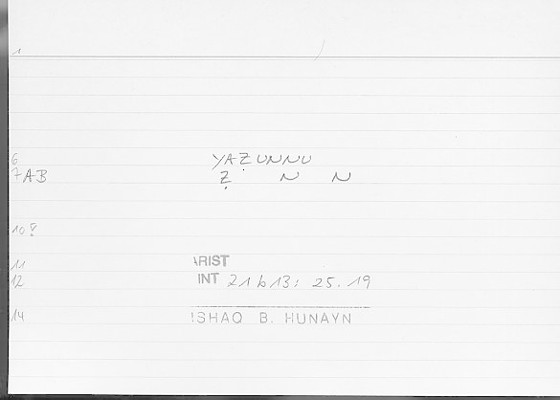 1
6 YAẒUNNU
7 AB Ẓ N N
10
11 ARIST
12 INT 21 b 13: 25.19
14 ISHAQ B. HUNAYN